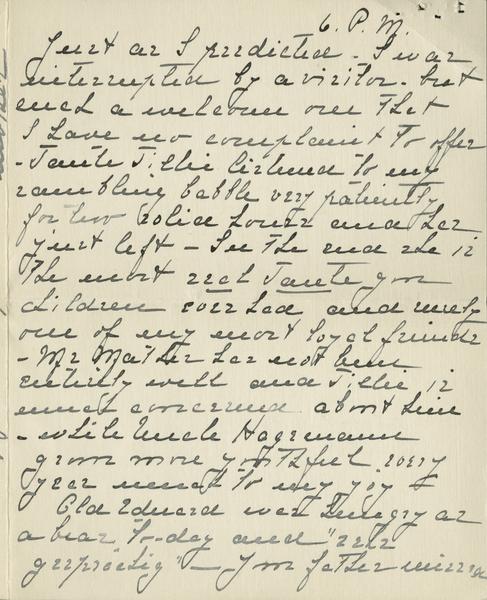 6. P. M.
Just as I predicted - I was
interrupted by a visitor - but
such a welcome one that
I have no complaint to offer
- Tante Tillie listened to my
rambling babble very patiently
for two solid hours and has
just left - In the end she is
the most real Tante your
children ever had and surely
one of my most loyal friends
- Mr Mather has not been
entirely well and Tillie is
much concerned about him
- while Uncle Hagemann
grows more youthful every
year much to my joy -
Old Eduard was hungry as
a bear to-day and "sehr
gesprächig" - Your father misses